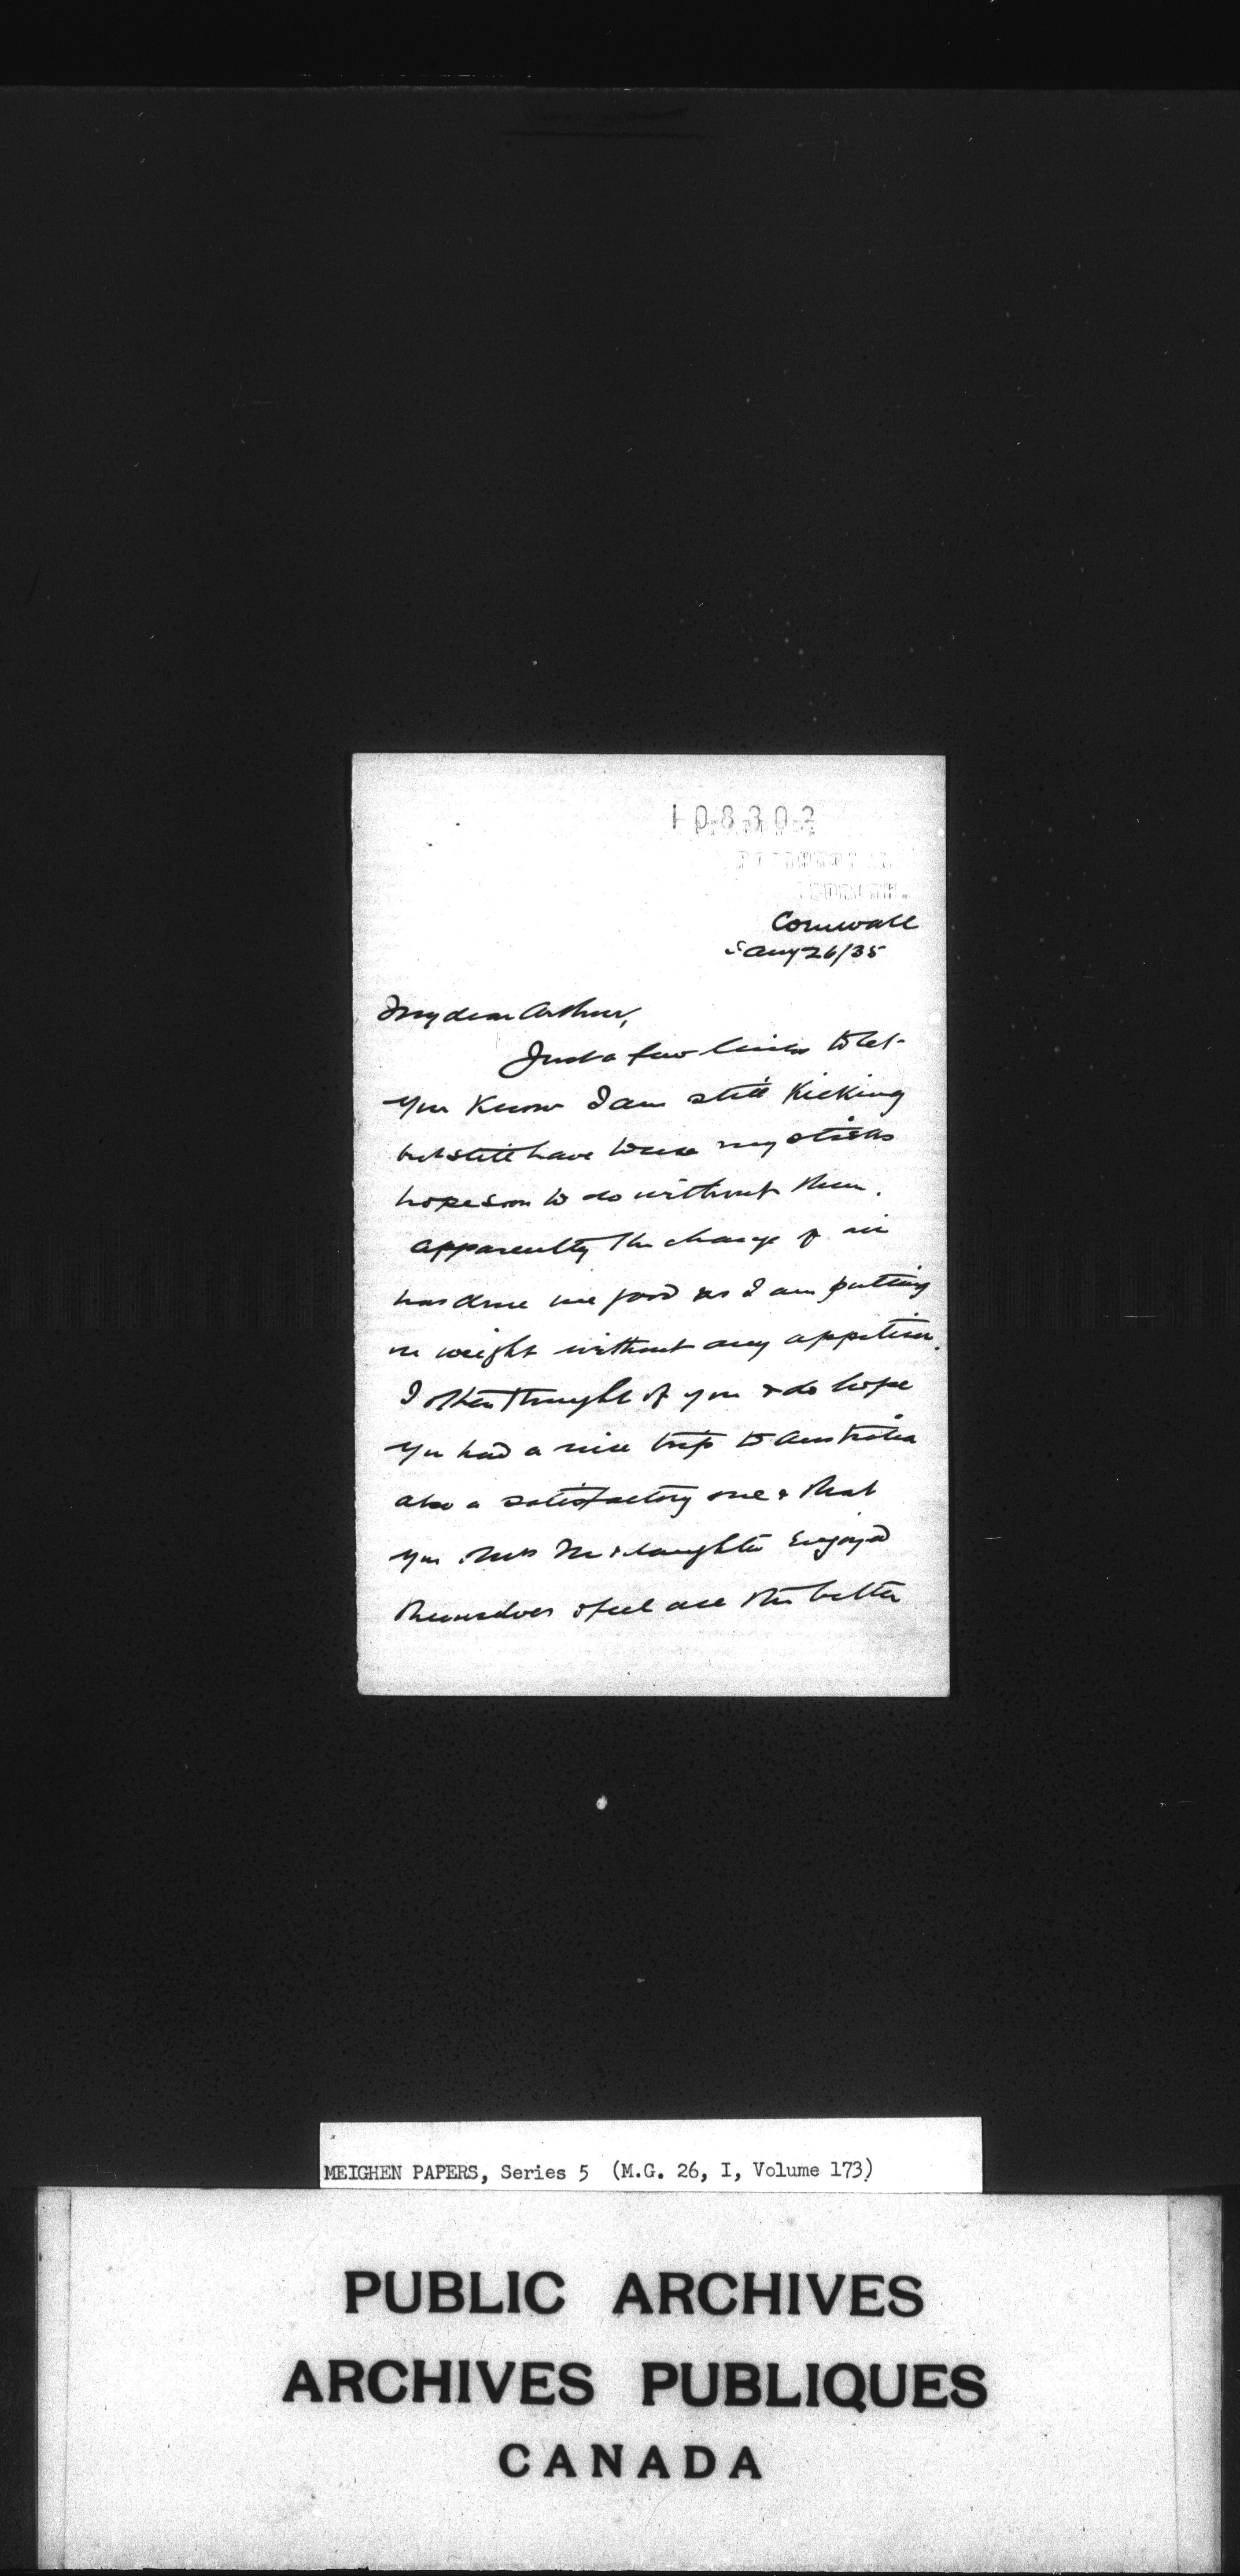 108302
Cornwall
Jany 26/35
My dear Arthur,
Just a few lines to let
you know I am still kicking
but still have to use my sticks
hope soon to do without them.
Apparently the change of air
has done me good as I am putting
on weight without any appetite.
I often thought of you & do hope
you had a nice trip to Australia
also a satisfactory one & that
you Mrs M & daughter enjoyed
themselves & feel all the better
MEIGHEN PAPERS, Series 5 (M.G. 26, I, Volume 173)
PUBLIC ARCHIVES
ARCHIVES PUBLIQUES
CANADA